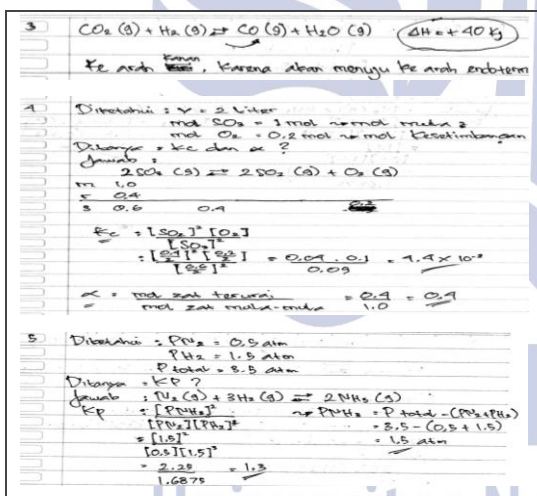 3 CO2 (g) + H2 (g) ⇌ CO (g) + H2O (g) ΔH = + 40 kj
Ke arah kanan, karena akan menuju ke arah endoterm
4 Diketahui : V = 2 Liter
mol SO3 = 1 mol → mol mula2
mol O2 = 0.2 mol → mol kesetimbangan
Ditanya = Kc dan α ?
Jawab :
2 SO3 (g) ⇌ 2 SO2 (g) + O2 (g)
m 1,0
r 0.4
s 0.6 0.4
Kc = [SO2]² [O2]
[SO3]²
= [0.4/2]² [0.2/2] = 0.04 . 0.1 = 4.4 x 10⁻²
[0.6/2]² 0.09
α = mol zat terurai = 0.4 = 0.4
mol zat mula-mula 1.0
5 Diketahui : PN2 = 0.5 atm
PH2 = 1.5 atm
P total = 3.5 atm
Ditanya = KP ?
Jawab : N2 (g) + 3H2 (g) ⇌ 2 NH3 (g)
KP = [PNH3]² → PNH3 = P total - (PN2 + PH2)
[PN2][PH2]³ = 3,5 - (0,5 + 1.5)
= [1.5]² = 1,5 atm
[0.5][1.5]³
= 2.25 = 1.3
1.6875